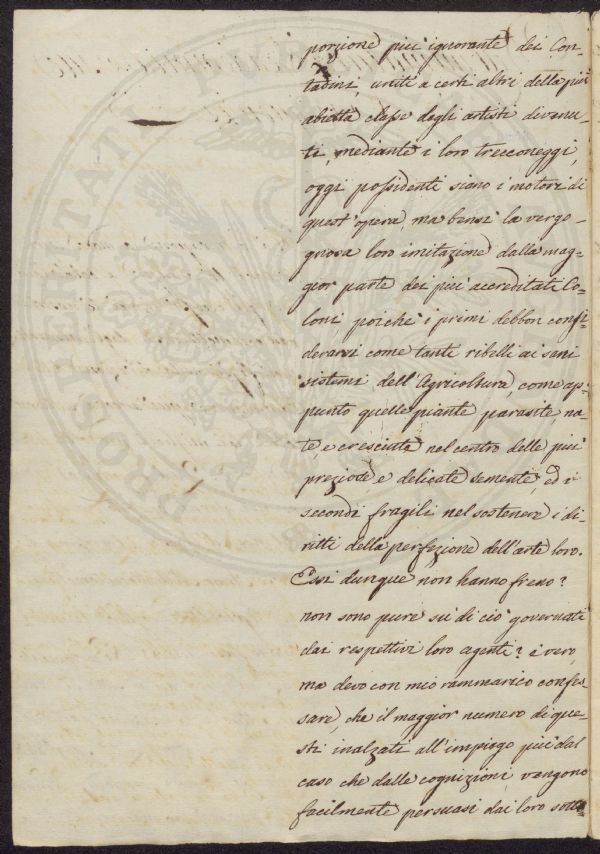 porzione più ignorante dei Con-
tadini, uniti a certi altri della più
abietta classe degli artisti divenu-
ti, mediante i loro trecconeggi,
oggi possidenti siano i motori di
quest'opera, ma bensì la vergo-
gnosa loro imitazione dalla mag-
gior parte dei più accreditati Co-
loni, poiché i primi debbon consi-
derarsi come tanti ribelli ai sani
sistemi dell'Agricoltura, come ap-
punto quelle piante parasite, na-
te, e cresciute nel centro delle più
preziose e delicate semente, ed i
secondi fragili nel sostenere i di-
ritti della perfezione dell'arte loro.
Essi dunque non hanno freno?
non sono pure su di ciò governati
dai respettivi loro agenti? è vero,
ma devo con mio rammarico confes-
sare, che il maggior numero di que-
sti inalzati all'impiego più dal
caso che dalle cognizioni, vengono
facilmente persuasi dai loro sotto
PROSPERITATI PUBLICAE